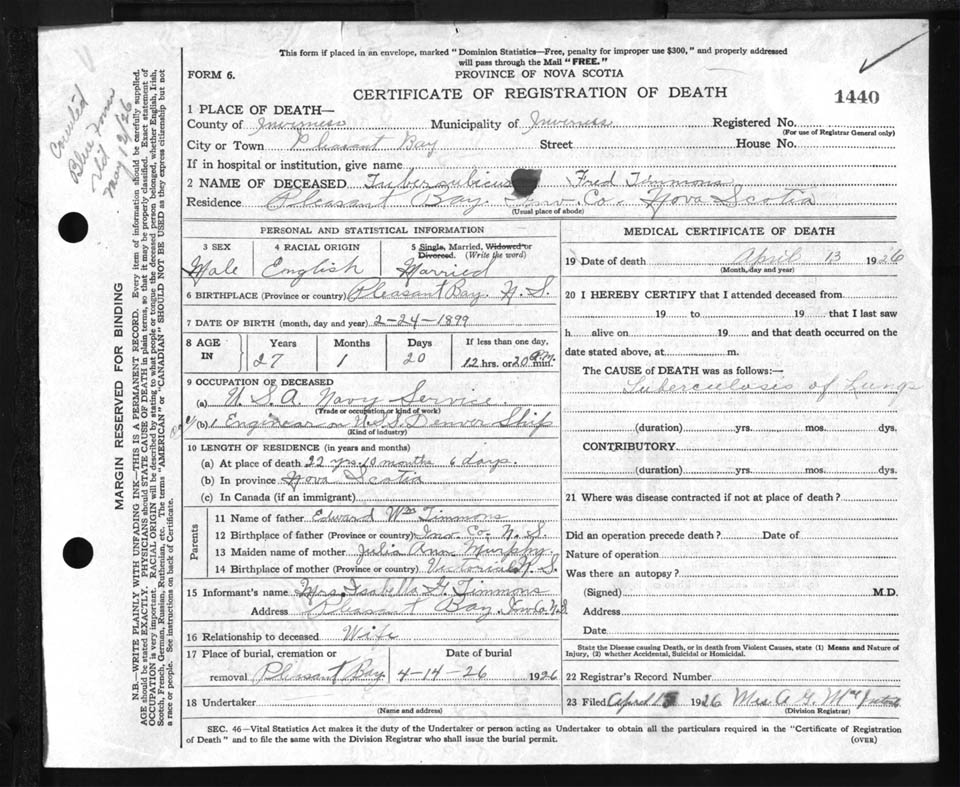 This form if placed in an envelope, marked "Dominion Statistics—Free, penalty for improper use $300," and properly addressed
will pass through the Mail "FREE."
FORM 6.
PROVINCE OF NOVA SCOTIA
CERTIFICATE OF REGISTRATION OF DEATH
1440
1 PLACE OF DEATH—
County of Inverness Municipality of Inverness Registered No.
(For use of Registrar General only)
City or Town Pleasant Bay Street House No.
If in hospital or institution, give name
2 NAME OF DECEASED Fred Timmons
Residence Pleasant Bay. Inv. Co. Nova Scotia
(Usual place of abode)
PERSONAL AND STATISTICAL INFORMATION
3 SEX 4 RACIAL ORIGIN 5 Single, Married, Widowed or Divorced. (Write the word)
Male English Married
6 BIRTHPLACE (Province or country) Pleasant Bay. N.S.
7 DATE OF BIRTH (month, day and year) 2-24-1899
8 AGE IN Years Months Days If less than one day,
27 1 20 12 hrs. or 20 P.M. min.
9 OCCUPATION OF DECEASED
(a) U.S.A. Navy Service.
(Trade or occupation or kind of work)
(b) Engineer on U.S.S. Denver Ship
(Kind of industry)
10 LENGTH OF RESIDENCE (in years and months)
(a) At place of death 22 yrs. 10 months 6 days.
(b) In province Nova Scotia
(c) In Canada (if an immigrant)
Parents
11 Name of father Edward Wm Timmons
12 Birthplace of father (Province or country) Inv. Co. N.S.
13 Maiden name of mother Julia Ann Murphy
14 Birthplace of mother (Province or country) Victoria N.S.
15 Informant's name Mrs. Isabella G. Timmons
Address Pleasant Bay. Inv. Co. N.S.
16 Relationship to deceased Wife
17 Place of burial, cremation or removal Date of burial
Pleasant Bay. 4-14-26 1926
18 Undertaker
(Name and address)
MEDICAL CERTIFICATE OF DEATH
19 Date of death April 13 1926
(Month, day and year)
20 I HEREBY CERTIFY that I attended deceased from
19 to 19 that I last saw
h alive on 19 and that death occurred on the
date stated above, at m.
The CAUSE of DEATH was as follows:—
Tuberculosis of Lungs
(duration) yrs. mos. dys.
CONTRIBUTORY.
(duration) yrs. mos. dys.
21 Where was disease contracted if not at place of death?
Did an operation precede death? Date of
Nature of operation
Was there an autopsy?
(Signed) M.D.
Address
Date
State the Disease causing Death, or in death from Violent Causes, state (1) Means and Nature of
Injury, (2) whether Accidental, Suicidal or Homicidal.
22 Registrar's Record Number
23 Filed April 15 1926 Mrs A G
(Division Registrar)
SEC. 46—Vital Statistics Act makes it the duty of the Undertaker or person acting as Undertaker to obtain all the particulars required in the "Certificate of Registration
of Death" and to file the same with the Division Registrar who shall issue the burial permit.
(OVER)
MARGIN RESERVED FOR BINDING
N.B.—WRITE PLAINLY WITH UNFADING INK—THIS IS A PERMANENT RECORD. Every item of information should be carefully supplied.
AGE should be stated EXACTLY. PHYSICIANS should STATE CAUSE OF DEATH in plain terms, so that it may be properly classified. Exact statement of
OCCUPATION is very important. RACIAL ORIGIN will be described by stating to what people or tongue the deceased person belonged, whether English, Irish,
Scotch, French, German, Russian, Ruthenian, etc. The terms "AMERICAN" or "CANADIAN" SHOULD NOT BE USED as they express citizenship but not
a race or people. See instructions on back of Certificate.
May 12/26